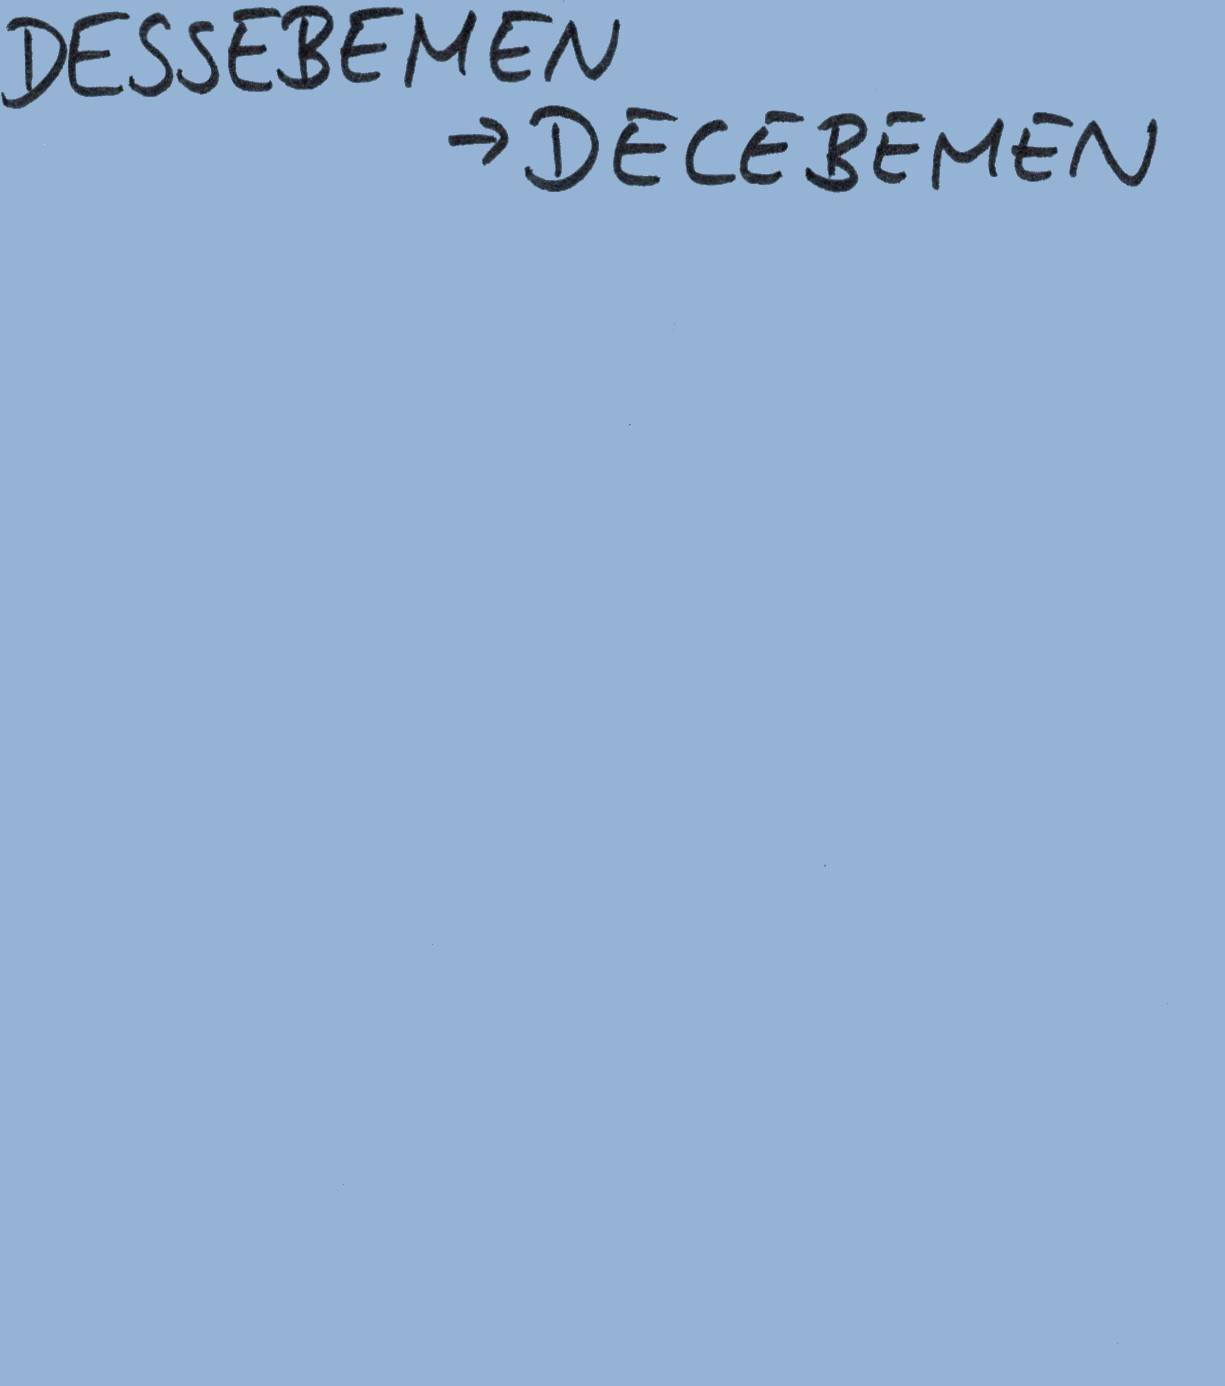 DESSEBEMEN
→ DECEBEMEN